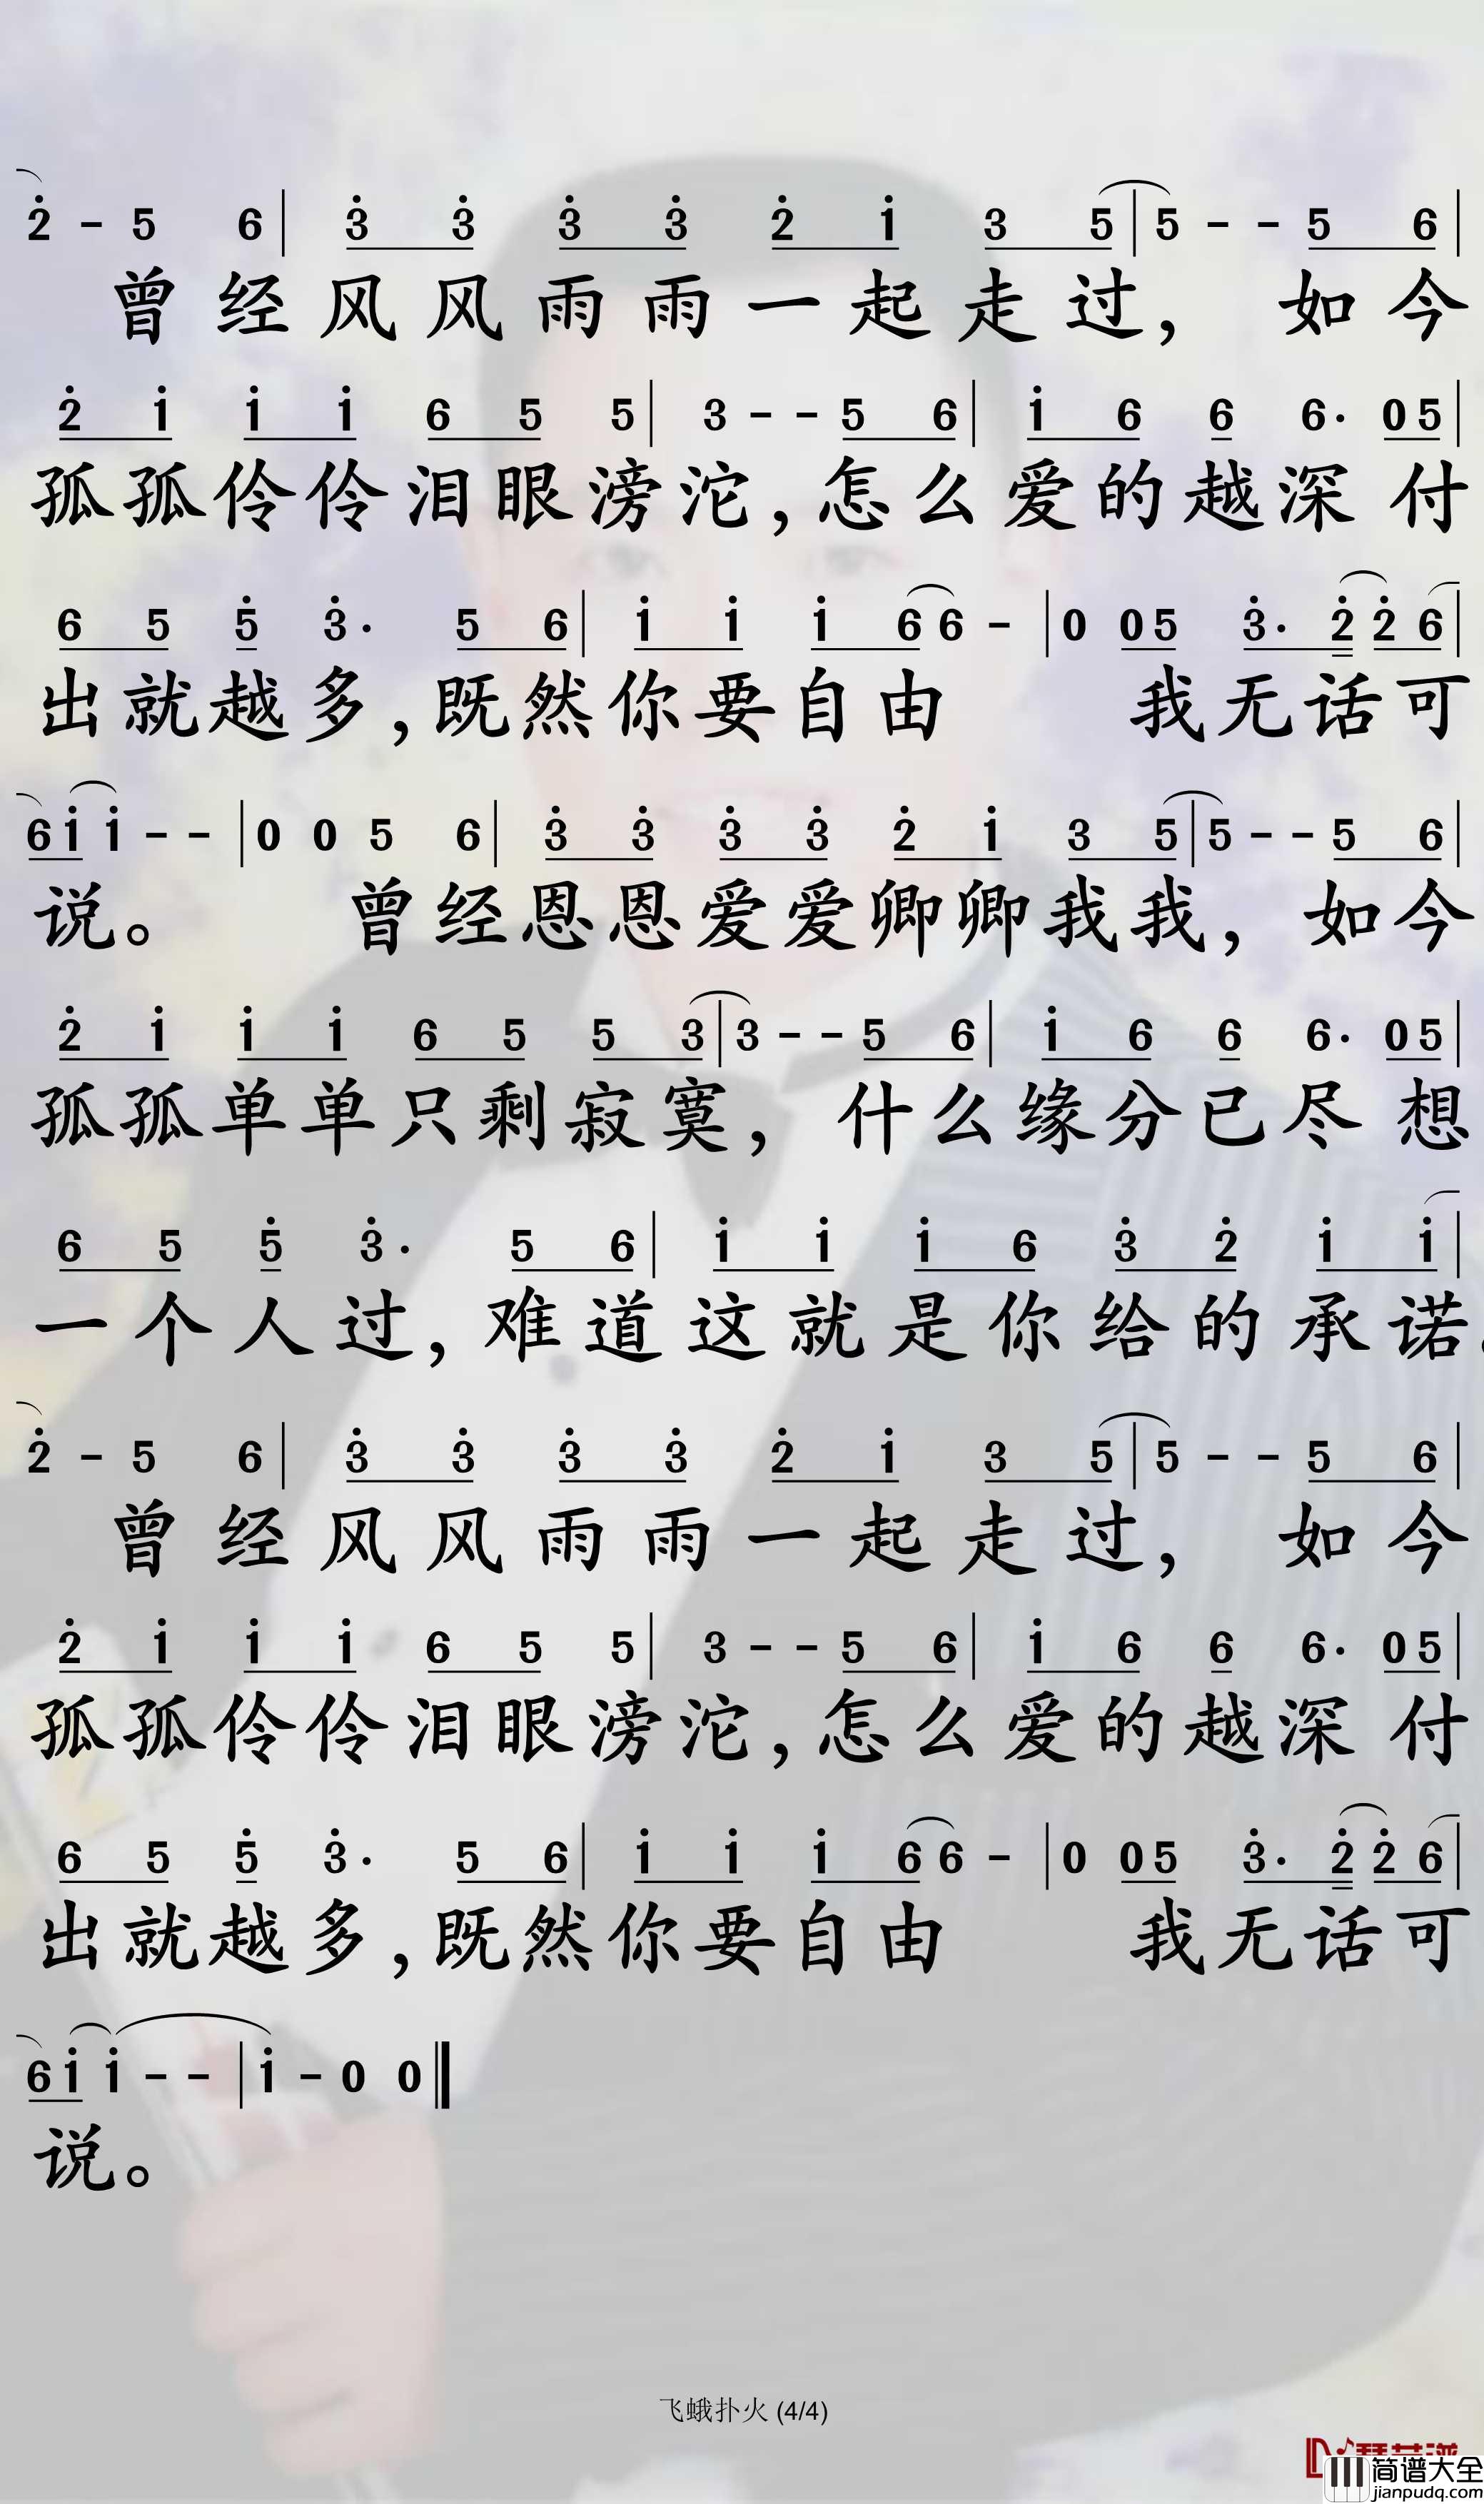 2̇ - 5 6 | 3̇ 3̇ 3̇ 3̇ 2̇ 1̇ 3 5 | 5 - - 5 6 |
曾经风风雨雨一起走过，如今
2̇ 1̇ 1̇ 1̇ 6 5 5 | 3 - - 5 6 | 1̇ 6 6 6· 0 5 |
孤孤伶伶泪眼滂沱，怎么爱的越深 付
6 5 5̇ 3̇· 5 6 | 1̇ 1̇ 1̇ 6 6 - | 0 0 5 3̇· 2̇ 2̇ 6 |
出就越多，既然你要自由 我无话可
6 1̇ 1̇ - - | 0 0 5 6 | 3̇ 3̇ 3̇ 3̇ 2̇ 1̇ 3 5 | 5 - - 5 6 |
说。 曾经恩恩爱爱卿卿我我，如今
2̇ 1̇ 1̇ 1̇ 6 5 5 3 | 3 - - 5 6 | 1̇ 6 6 6· 0 5 |
孤孤单单只剩寂寞，什么缘分已尽 想
6 5 5̇ 3̇· 5 6 | 1̇ 1̇ 1̇ 6 3̇ 2̇ 1̇ 1̇ |
一个人过，难道这就是你给的承诺。
2̇ - 5 6 | 3̇ 3̇ 3̇ 3̇ 2̇ 1̇ 3 5 | 5 - - 5 6 |
曾经风风雨雨一起走过，如今
2̇ 1̇ 1̇ 1̇ 6 5 5 | 3 - - 5 6 | 1̇ 6 6 6· 0 5 |
孤孤伶伶泪眼滂沱，怎么爱的越深 付
6 5 5̇ 3̇· 5 6 | 1̇ 1̇ 1̇ 6 6 - | 0 0 5 3̇· 2̇ 2̇ 6 |
出就越多，既然你要自由 我无话可
6 1̇ 1̇ - - | 1̇ - 0 0 ‖
说。
飞蛾扑火 (4/4)
简谱大全
jianpudq.com